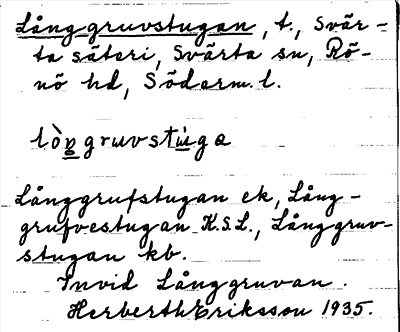 Långgruvstugan, t., Svär-
ta säteri, Svärta sn, Rö-
nö hd, Söderm. l.
lòŋgruvstu̇ga
Långgrufstugan ek, Lång-
grufvestugan K.S.L., Långgruv-
stugan kb.
Invid Långgruvan.
Herberth Eriksson 1935.